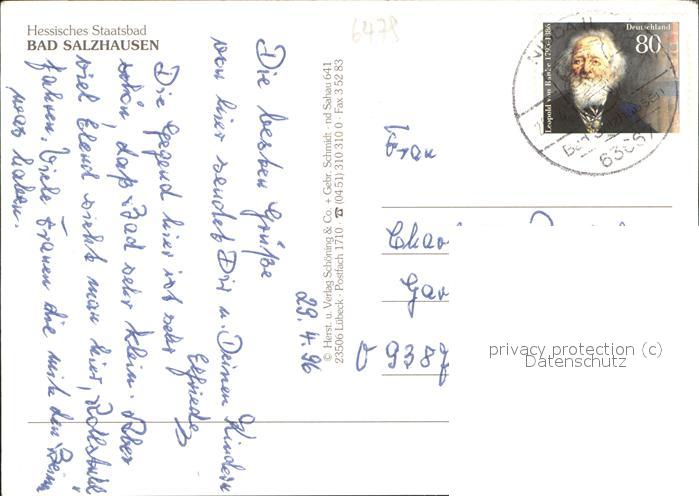 Hessisches Staatsbad
BAD SALZHAUSEN
6479
29.4.96
Die besten Grüße
von hier sendet Dir u. Deinen Kindern
Elfriede
Die Gegend hier ist sehr
schön, das Bad sehr klein. Aber
viel Elend sieht man hier, Rollstuhl
fahren. Viele Frauen die mit den Bein
was haben.
© Herst. u. Verlag Schöning & Co. + Gebr. Schmidt · nd Sahau 641
23506 Lübeck · Postfach 1710 · ☎ (04 51) 310 310 0 · Fax 3 52 83
Leopold von Ranke 1795-1886
Deutschland
80
NIDDA
Bad Salzhausen
63667
Frau
Char
Gar
938
privacy protection (c)
Datenschutz